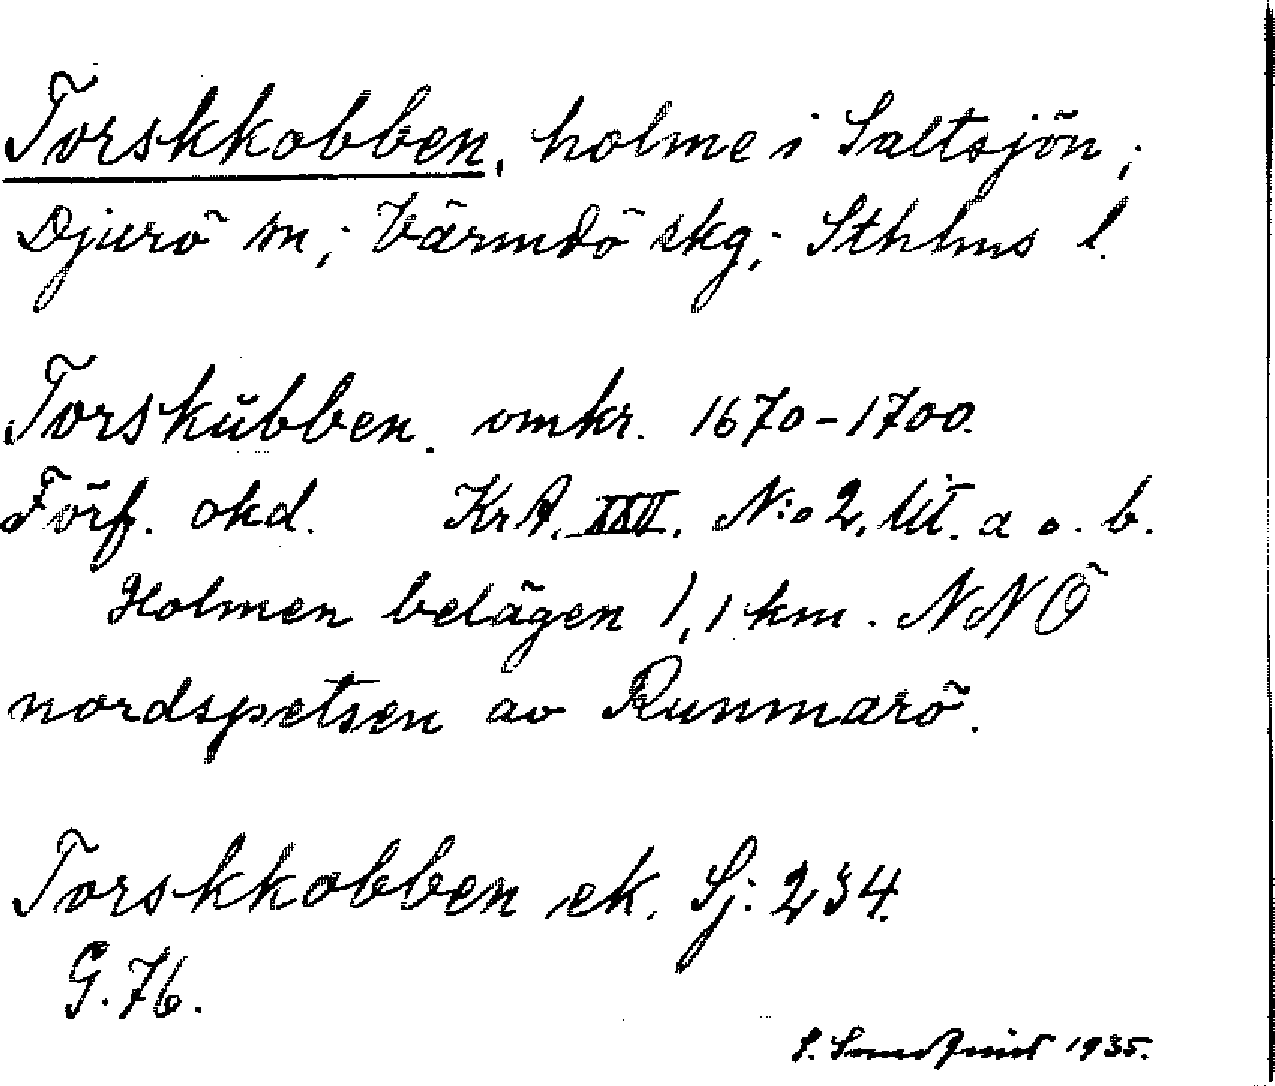 Torskkobben, holme i Saltsjön;
Djurö sn; Värmdö skg; Sthlms l.
Torskŭbben. omkr. 1670-1700.
Förf. okd. KrA. XXII. N:o 2. litt. a o. b.
Holmen belägen 1,1 km. NNÖ
nordspetsen av Runmarö.
Torskkobben ek. Sj: 234.
G. 76.
S. 1935.